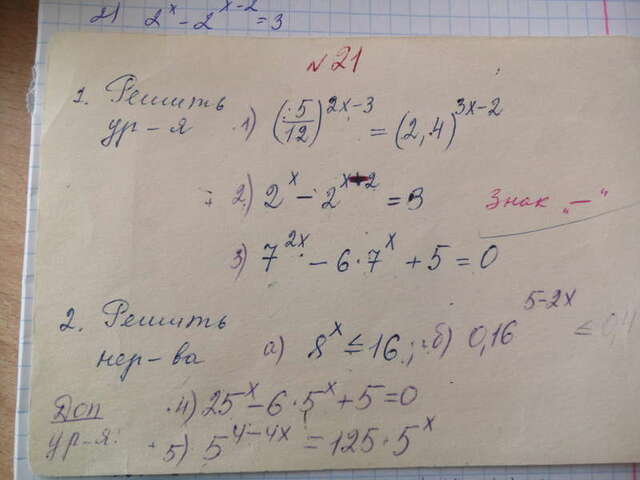 2) 2^x - 2^{x-2} = 3
№21
1. Решить
ур-я 1) (5/12)^{2x-3} = (2,4)^{3x-2}
2) 2^x - 2^{x-2} = 3 Знак „—“
3) 7^{2x} - 6·7^x + 5 = 0
2. Решить
нер-ва а) 8^x ≤ 16; б) 0,16^{5-2x} ≤ 0,4
Доп 4) 25^x - 6·5^x + 5 = 0
ур-я: 5) 5^{4-4x} = 125·5^x